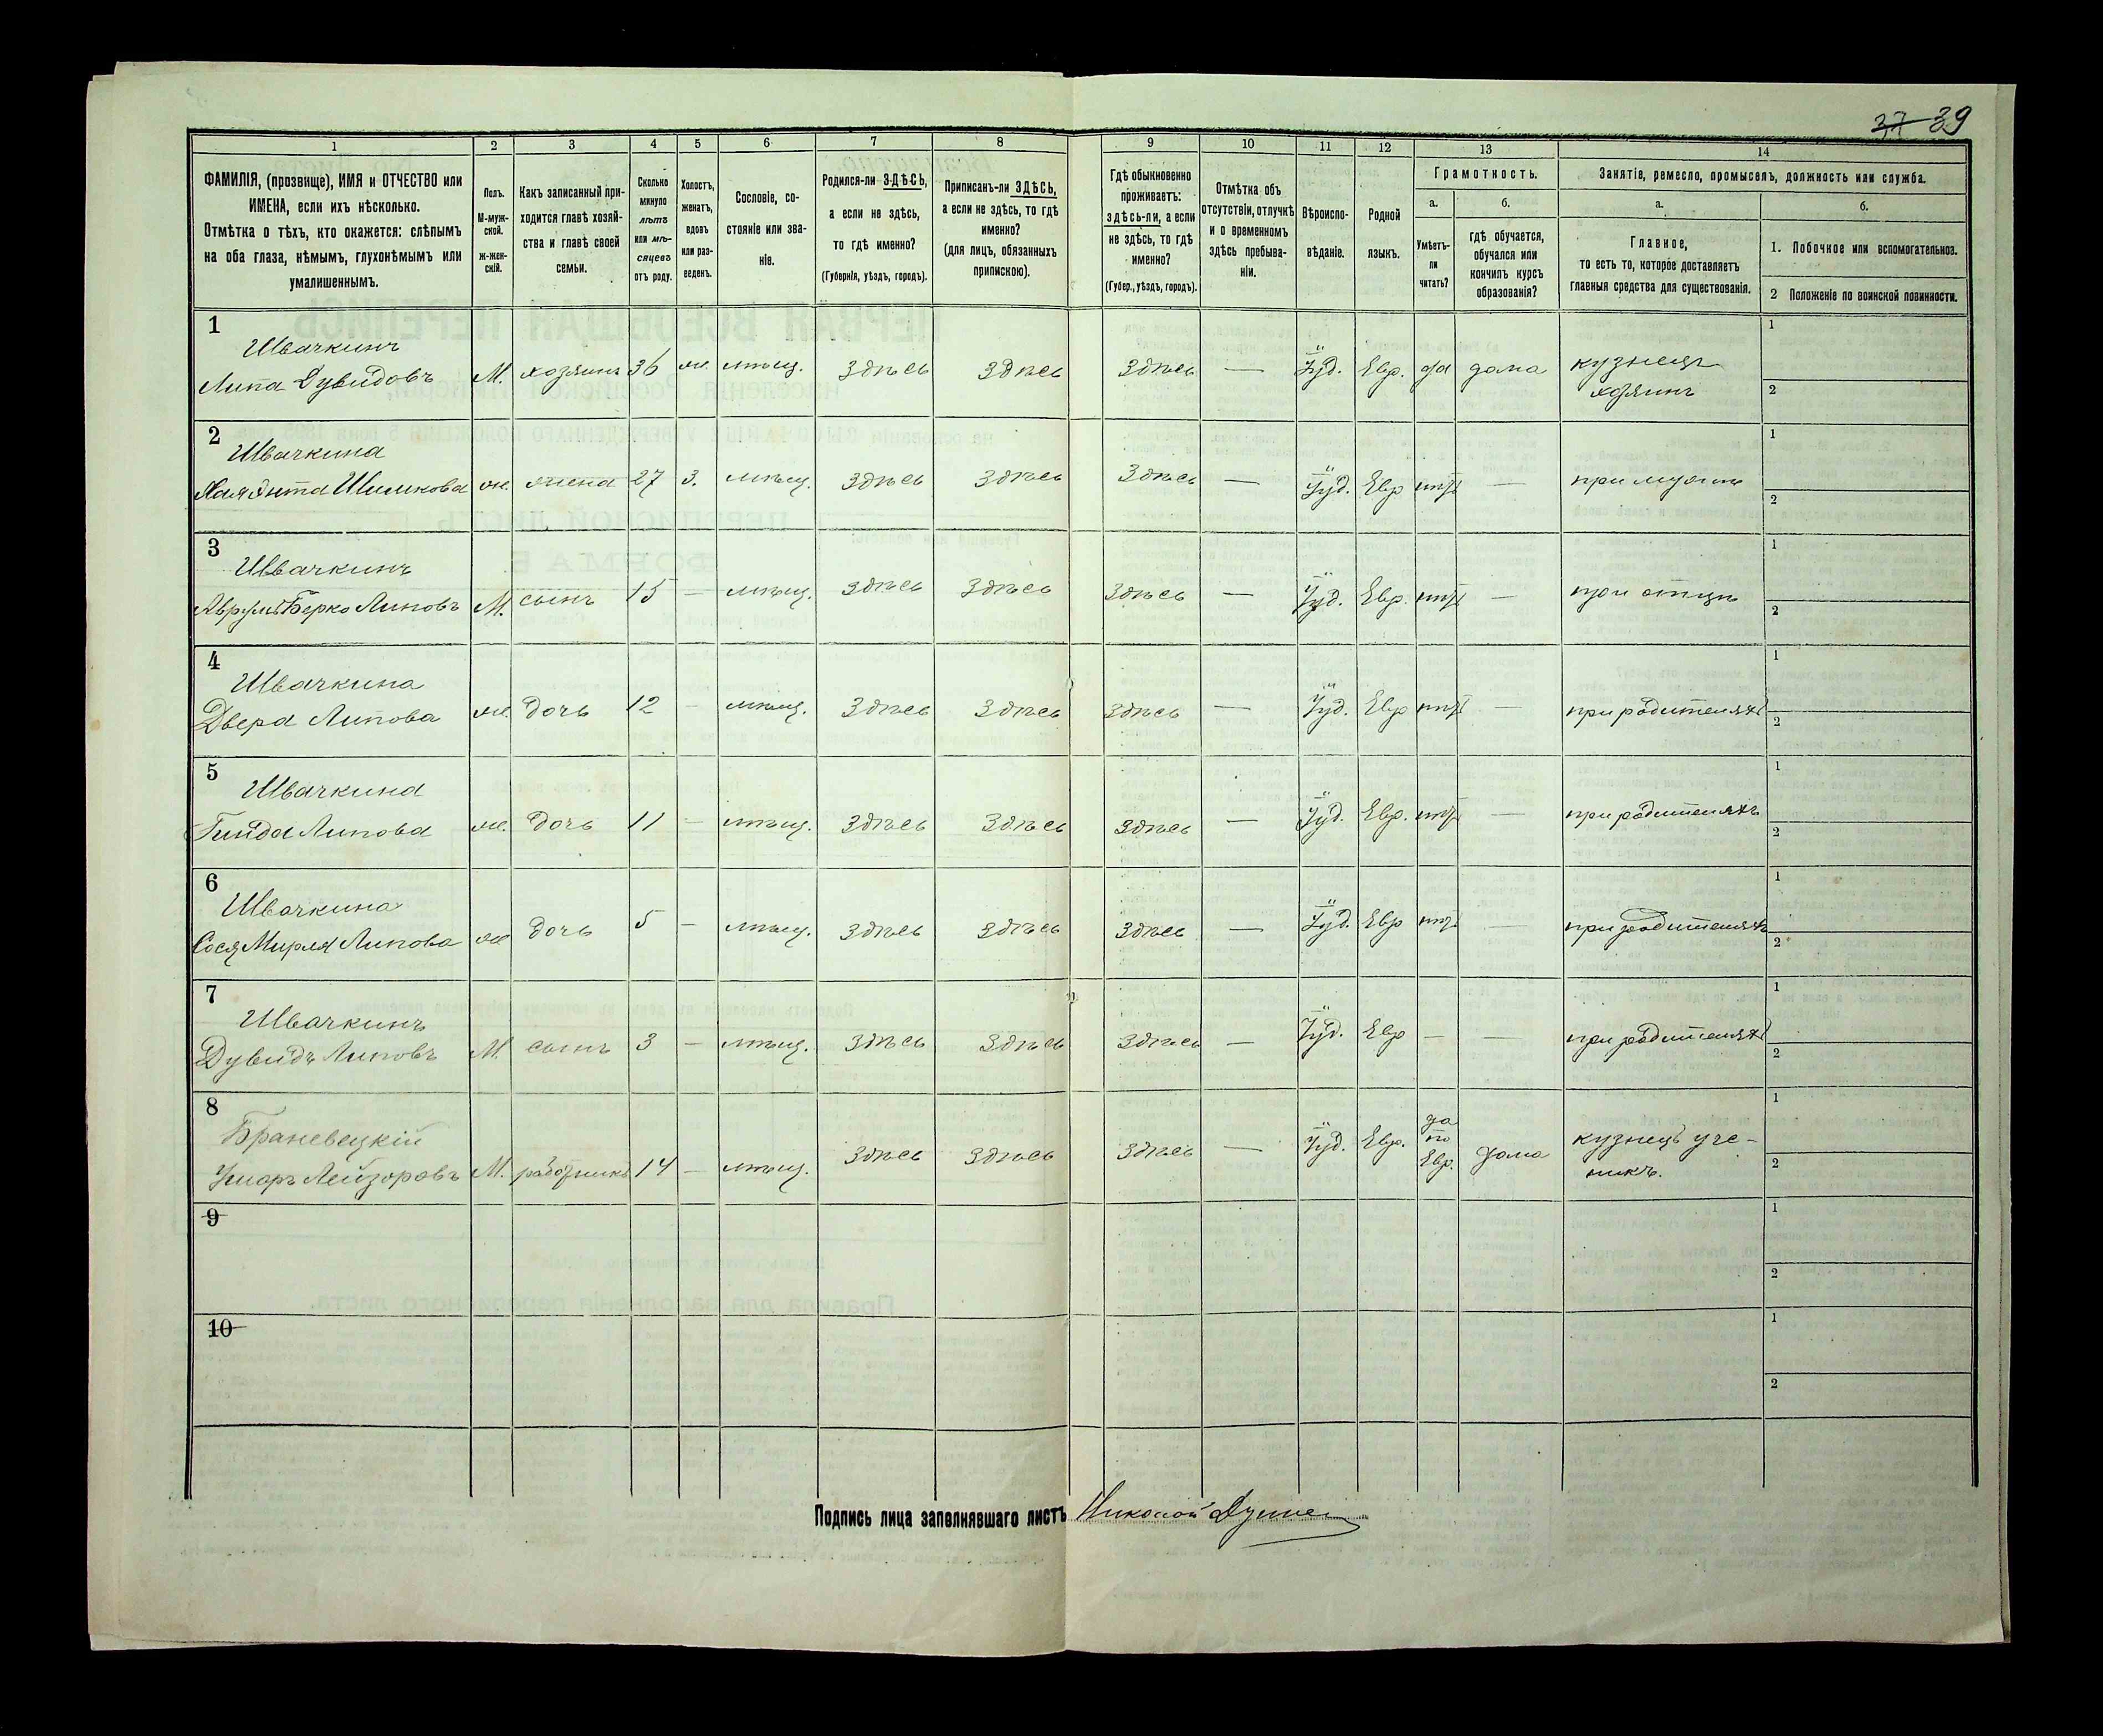 37 39
1 2 3 4 5 6 7 8 9 10 11 12 13 14
ФАМИЛІЯ, (прозвище), ИМЯ и ОТЧЕСТВО или ИМЕНА, если ихъ нѣсколько.
Отмѣтка о тѣхъ, кто окажется: слѣпымъ на оба глаза, нѣмымъ, глухонѣмымъ или умалишеннымъ.
Полъ. М-мужской. Ж-женскій.
Какъ записанный приходится главѣ хозяйства и главѣ своей семьи.
Сколько минуло лѣтъ или мѣсяцевъ отъ роду.
Холостъ, женатъ, вдовъ или разведенъ.
Сословіе, состояніе или званіе.
Родился-ли ЗДѢСЬ, а если не здѣсь, то гдѣ именно? (Губернія, уѣздъ, городъ).
Приписанъ-ли ЗДѢСЬ, а если не здѣсь, то гдѣ именно? (для лицъ, обязанныхъ припискою).
Гдѣ обыкновенно проживаетъ: здѣсь-ли, а если не здѣсь, то гдѣ именно? (Губер., уѣздъ, городъ).
Отмѣтка объ отсутствіи, отлучкѣ и о временномъ здѣсь пребываніи.
Вѣроисповѣданіе.
Родной языкъ.
Грамотность.
а. Умѣетъ-ли читать?
б. гдѣ обучается, обучался или кончилъ курсъ образованія?
Занятіе, ремесло, промыселъ, должность или служба.
а. Главное, то есть то, которое доставляетъ главныя средства для существованія.
б.
1. Побочное или вспомогательное.
2 Положеніе по воинской повинности.
1 Швачкинъ Липа Дувидовъ М. хозяинъ 36 ж. мѣщ. Здѣсь Здѣсь Здѣсь — Іуд. Евр. да дома кузнецъ хозяинъ 1 2
2 Швачкина Хая Энта Шлимкова ж. жена 27 З. мѣщ. Здѣсь Здѣсь Здѣсь — Іуд. Евр нѣтъ — при мужѣ 1 2
3 Швачкинъ Берко Липовъ М. сынъ 15 — мѣщ. Здѣсь Здѣсь Здѣсь — Іуд. Евр. нѣтъ — при отцѣ 1 2
4 Швачкина Двера Липова ж. дочь 12 — мѣщ. Здѣсь Здѣсь Здѣсь — Іуд. Евр нѣтъ — при родителяхъ 1 2
5 Швачкина Гинда Липова ж. дочь 11 — мѣщ. Здѣсь Здѣсь Здѣсь — Іуд. Евр. нѣтъ — при родителяхъ 1 2
6 Швачкина Сося Мирля Липова ж дочь 5 — мѣщ. Здѣсь Здѣсь Здѣсь — Іуд. Евр нѣтъ — при родителяхъ 1 2
7 Швачкинъ Дувидъ Липовъ М. сынъ 3 — мѣщ. Здѣсь Здѣсь Здѣсь — Іуд. Евр — — при родителяхъ 1 2
8 Браневецкій Лейзоровъ М. работникъ 14 — мѣщ. Здѣсь Здѣсь Здѣсь — Іуд. Евр. да по Евр. дома кузнецъ ученикъ. 1 2
9 1 2
10 1 2
Подпись лица заполнявшаго листъ Николай